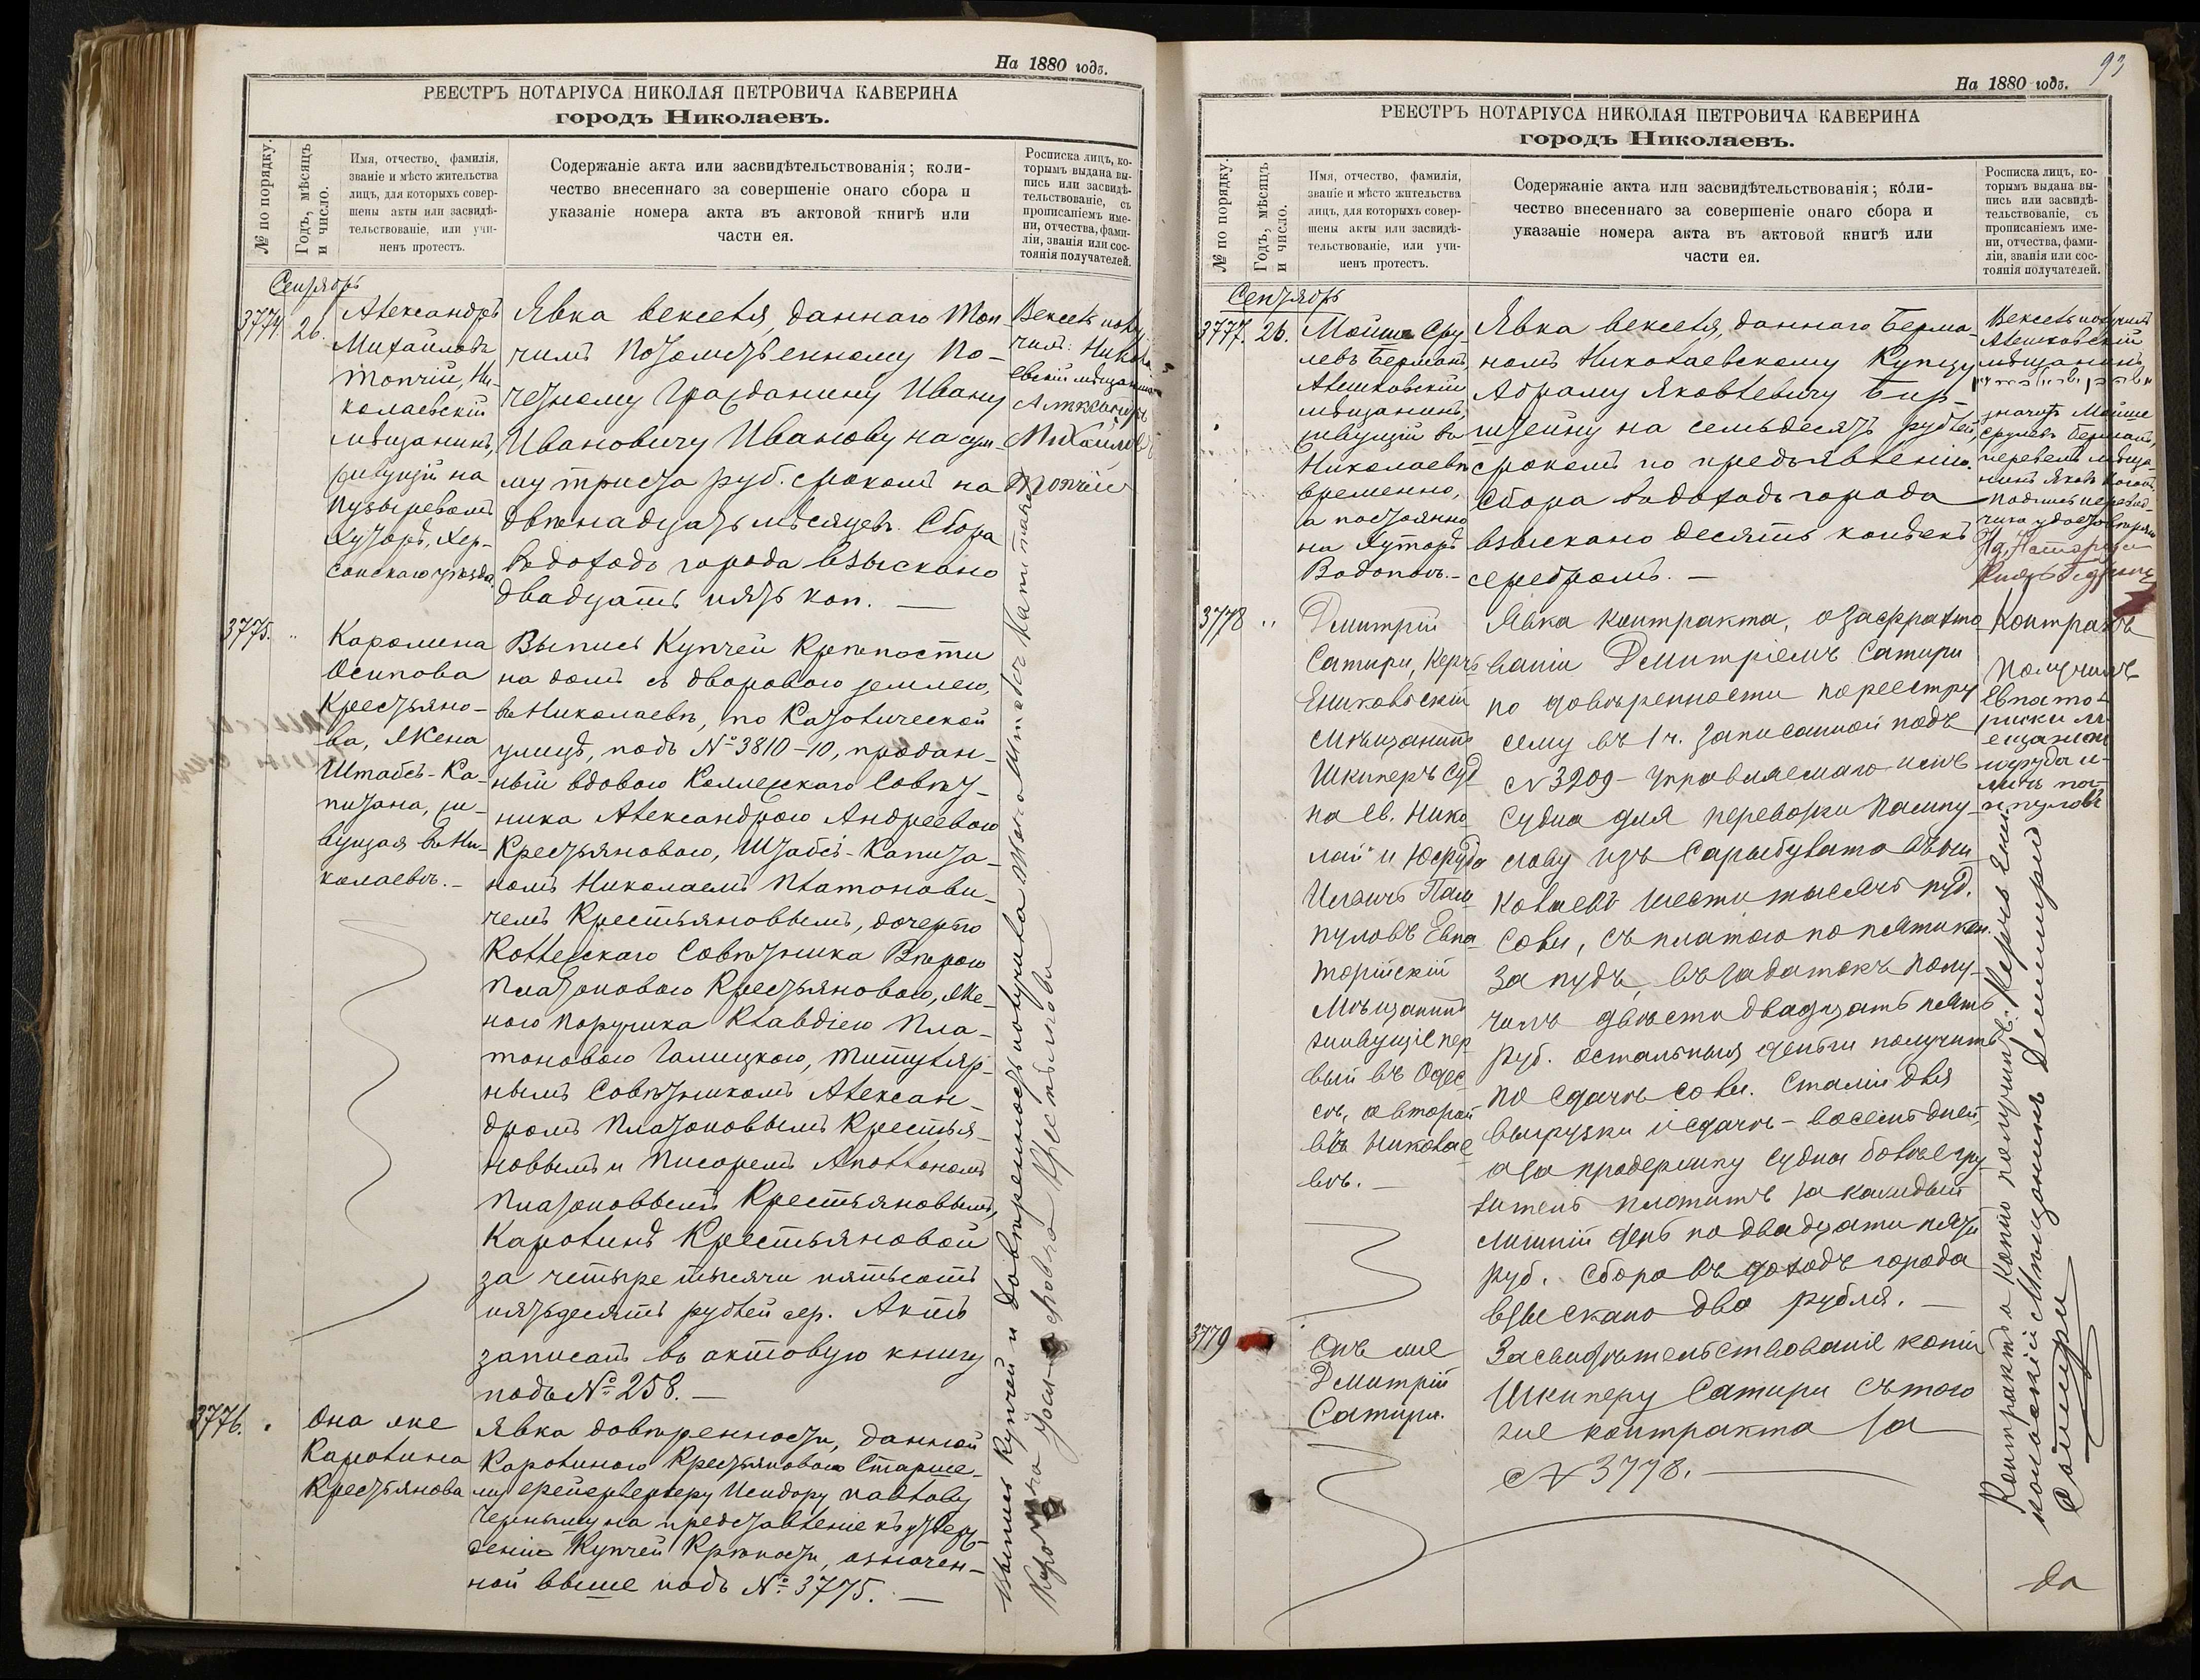 На 1880 годъ.
РЕЕСТРЪ НОТАРІУСА НИКОЛАЯ ПЕТРОВИЧА КАВЕРИНА
городъ Николаевъ.
№ по порядку.
Годъ, мѣсяцъ
и число.
Имя, отчество, фамилія,
званіе и мѣсто жительства
лицъ, для которыхъ совер-
шены акты или засвидѣ-
тельствованіе, или учи-
ненъ протестъ.
Содержаніе акта или засвидѣтельствованія; коли-
чество внесеннаго за совершеніе онаго сбора и
указаніе номера акта въ актовой книгѣ или
части ея.
Росписка лицъ, ко-
торымъ выдана вы-
пись или засвидѣ-
тельствованіе, съ
прописаніемъ име-
ни, отчества, фами-
ліи, званія или сос-
тоянія получателей.
Сентябрь
3774. 26.
Александръ
Михайловъ
Топчій, Ни-
колаевскій
мѣщанинъ,
живущій на
Пузыревомъ
Хуторѣ, Хер-
сонскаго уѣзда.
Явка векселя, даннаго Топ-
чимъ Потомственному По-
четному Гражданину Ивану
Ивановичу Иванову на сум-
му триста руб. срокомъ на
двѣнадцать мѣсяцевъ. Сбора
въ доходъ города взыскано
двадцать пять коп. —
Вексель полу-
чилъ: Никола-
евскій мѣщанинъ
Александръ
Михайловъ
Топчій
3775. "
Каролина
Осипова
Крестьяно-
ва, жена
Штабсъ-Ка-
питана, жи-
вущая въ Ни-
колаевѣ. -
Выпись Купчей Крѣпости
на домъ съ дворовою землею,
въ Николаевѣ, по Католической
улицѣ, подъ № 3810-10, продан-
ный вдовою Коллежскаго Совѣт-
ника Александрою Андреевою
Крестьяновою, Штабсъ-Капита-
номъ Николаемъ Платонови-
чемъ Крестьяновымъ, дочерью
Коллежскаго Совѣтника Вѣрою
Платоновою Крестьяновою, же-
ною поручика Клавдіею Пла-
тоновою Галицкою, титуляр-
нымъ Совѣтникомъ Алексан-
дромъ Платоновымъ Крестья-
новымъ и писаремъ Аполлономъ
Платоновымъ Крестьяновымъ,
Каролинѣ Крестьяновой
за четыре тысячи пятьсотъ
пятьдесятъ рублей сер. Актъ
записанъ въ актовую книгу
подъ № 258. —
3776. "
Она же
Каролина
Крестьянова
Явка довѣренности, данной
Каролиною Крестьяновою Старше-
му фейерверкеру Исидору Павлову
Черныму на представленіе къ утверж-
денію Купчей Крѣпости, означен-
ной выше подъ № 3775. —
Выпись Купчей и довѣренность получила жена Штабсъ Капитана
Каролина Крестьянова
93
На 1880 годъ.
РЕЕСТРЪ НОТАРІУСА НИКОЛАЯ ПЕТРОВИЧА КАВЕРИНА
городъ Николаевъ.
№ по порядку.
Годъ, мѣсяцъ
и число.
Имя, отчество, фамилія,
званіе и мѣсто жительства
лицъ, для которыхъ совер-
шены акты или засвидѣ-
тельствованіе, или учи-
ненъ протестъ.
Содержаніе акта или засвидѣтельствованія; коли-
чество внесеннаго за совершеніе онаго сбора и
указаніе номера акта въ актовой книгѣ или
части ея.
Росписка лицъ, ко-
торымъ выдана вы-
пись или засвидѣ-
тельствованіе, съ
прописаніемъ име-
ни, отчества, фами-
ліи, званія или сос-
тоянія получателей.
Сентябрь
3777. 26.
Мойше Сру-
левъ Берманъ,
Алешковскій
мѣщанинъ,
живущій въ
Николаевѣ
временно,
а постоянно
на Хуторѣ
Водопоѣ. -
Явка векселя, даннаго Берма-
номъ Николаевскому Купцу
Абраму Яковлевичу Бир-
штейну на семьдесятъ рублей,
срокомъ по предъявленію.
Сбора въ доходъ города
взыскано десять копѣекъ
серебромъ. —
Вексель получилъ
Алешковскій
мѣщанинъ
значитъ Мойше
Срулевъ Берманъ,
перевелъ мѣща-
нинъ Яковъ
подпись перевод-
чика удостовѣряю
Нотаріуса
3778 "
Дмитрій
Сатири, Керчь
Ениковскій
мѣщанинъ
Шкиперъ суд
на Св. Нико
лай и Юфуда
Иличъ Пам
пуловъ Евпа
торійскій
мѣщанинъ
живущіе пер
вый въ Одес
сѣ, а второй
въ Николае
вѣ. —
Явка контракта, о зафрахто
ваніи Дмитріемъ Сатири
по довѣренности по реестру
сему въ 1 ч. записанной подъ
№ 3209 - управляемаго имъ
судна для перевозки Пампу-
лову изъ Сарыбулата въ Ни
колаевъ шести тысячъ пуд.
соли, съ платою по пяти коп.
за пудъ, въ задатокъ полу-
чилъ двѣсти двадцать пять
руб. остальныя деньги получить
по сдачѣ соли. Сталіи для
выгрузки и сдачѣ - восемь дней,
а за продержку судна болѣе гру
зитель платитъ за каждый
лишній день по двадцати пяти
руб. Сбора въ доходъ города
взыскано два рубля. —
Контрактъ
получилъ
Евпато-
рійскій м-
ещанинъ
3779
Онъ же
Дмитрій
Сатири.
Засвидѣтельствованіе копіи
Шкиперу Сатири съ того
же контракта за
№ 3778. —
Контрактъ и копію получилъ: Керчь Ени-
кольскій Мѣщанинъ Дмитрій
Сатири